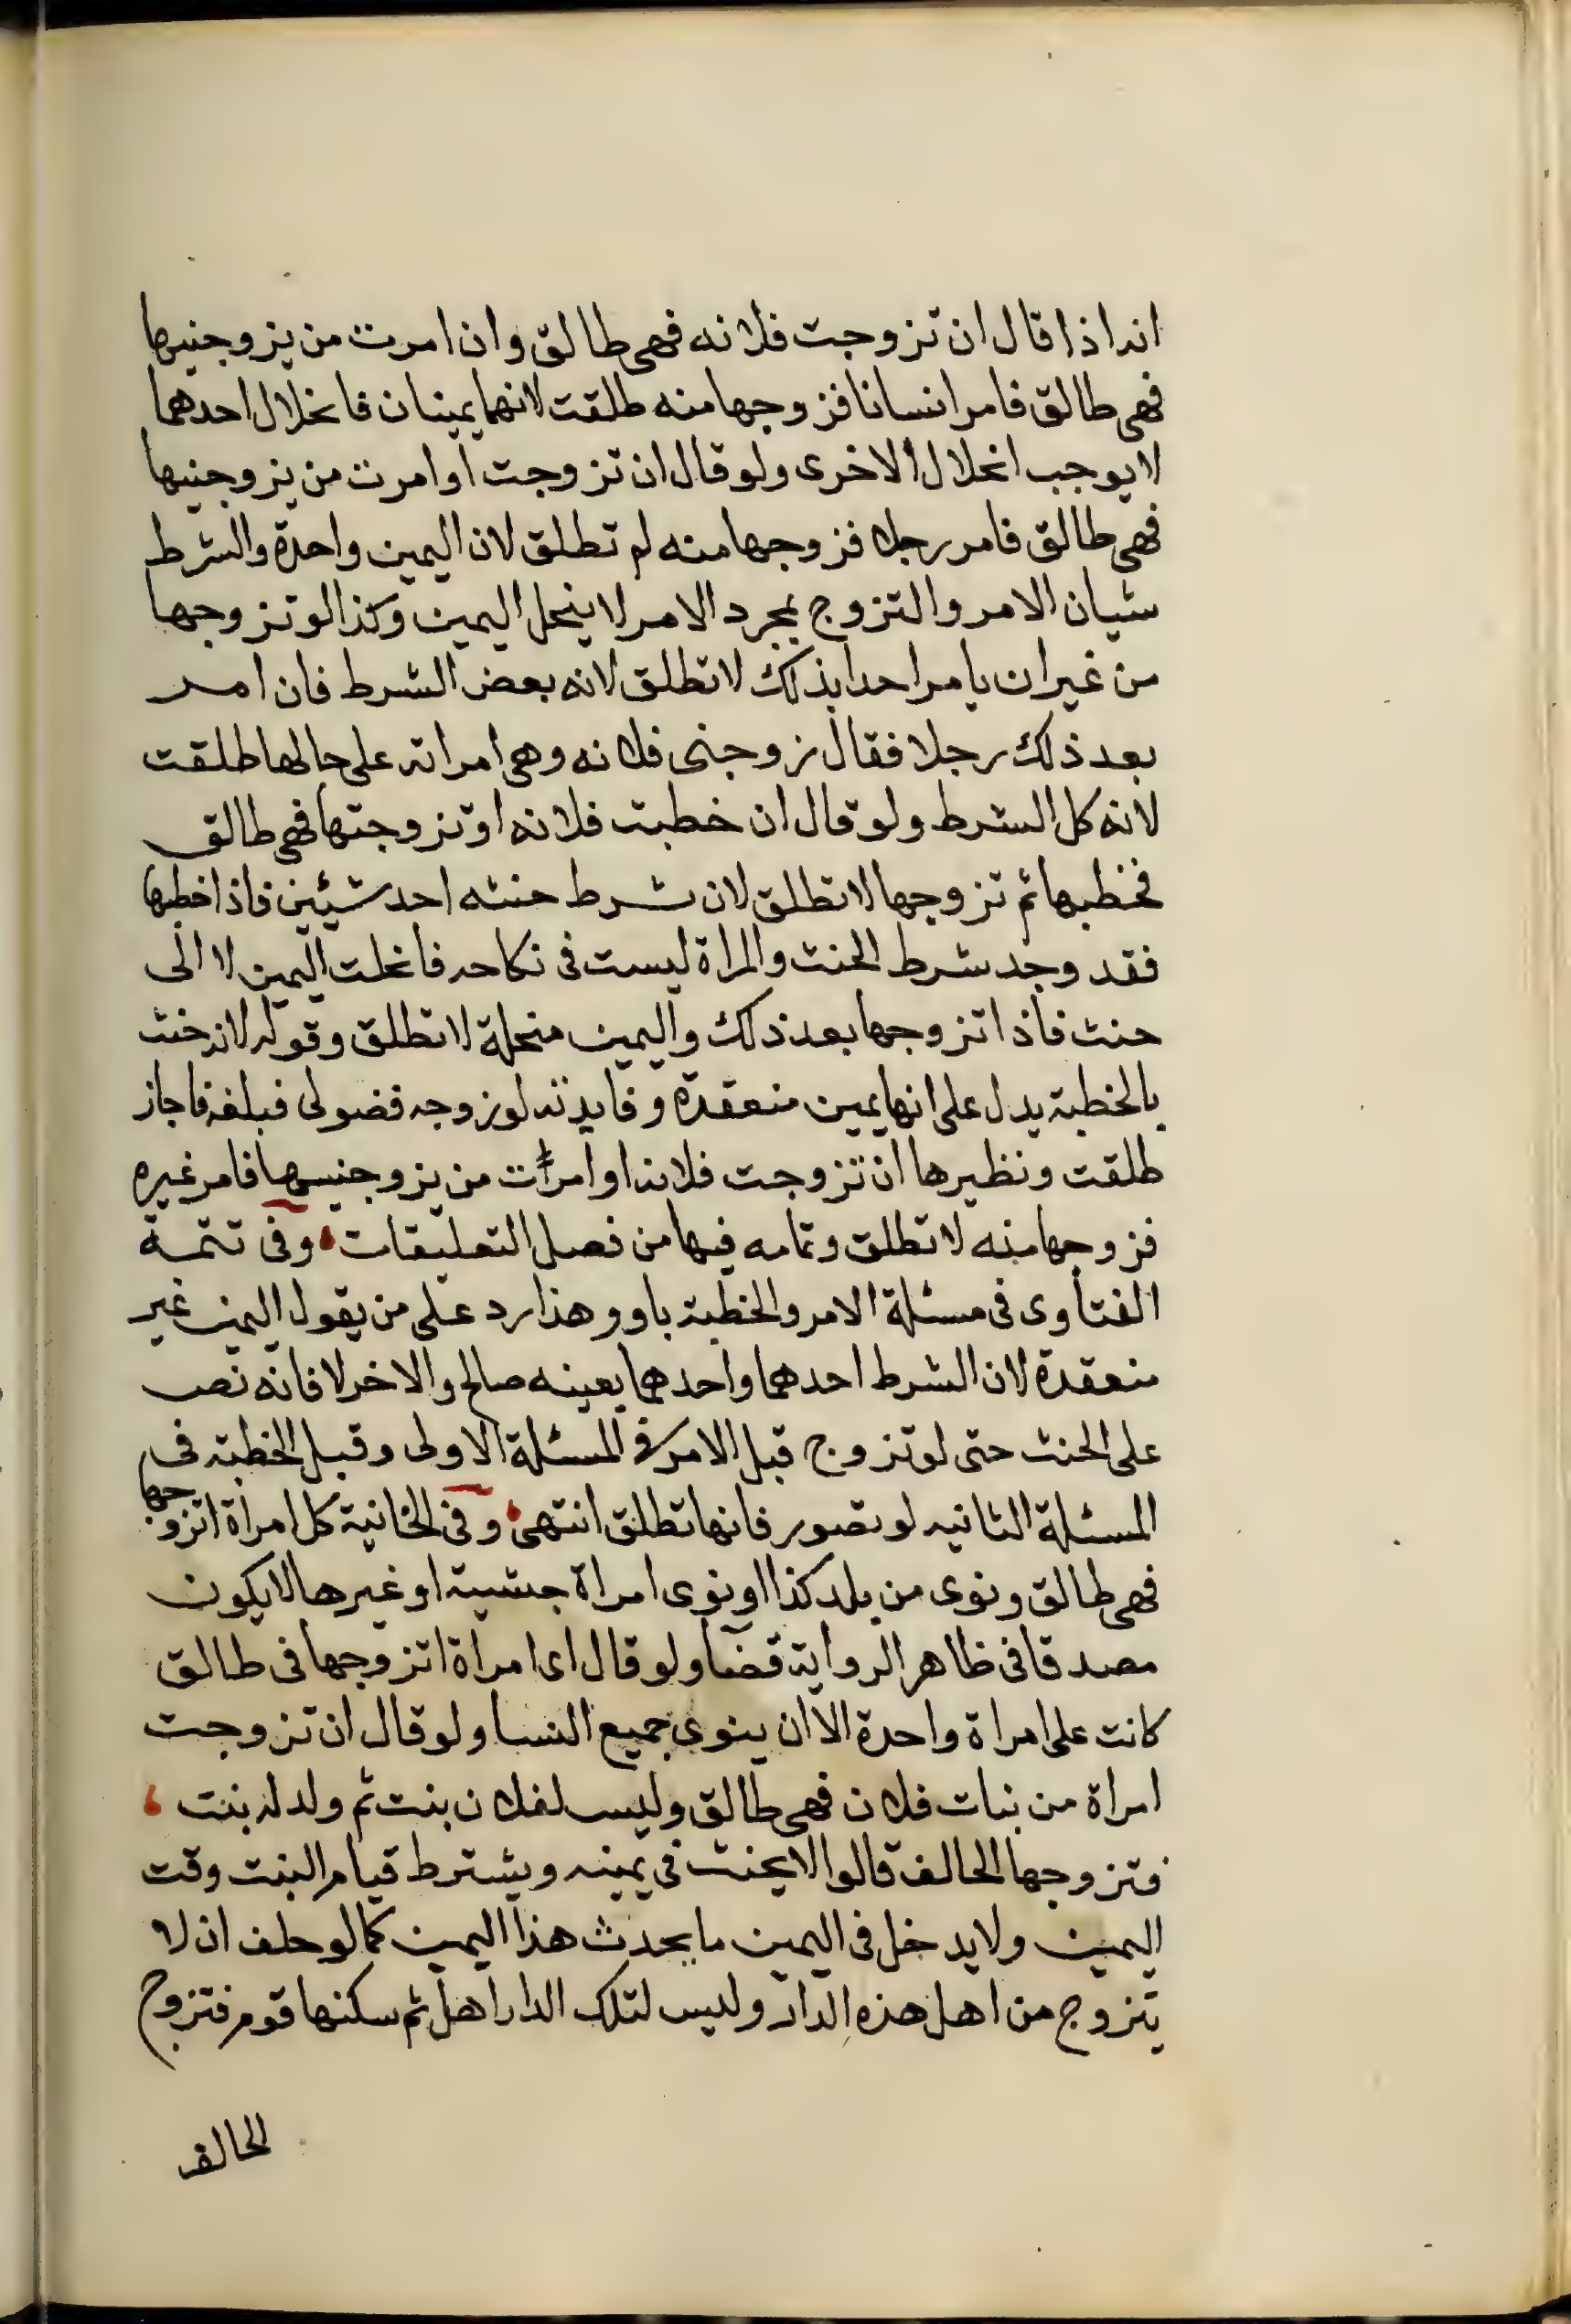 انه اذا قال ان تزوجت فلانه فهى طالق وان امرت من يزوجنيها
فهى طالق فامر انسانا فزوجها منه طلقت لانهما يمينان فانحلال احدهما
لا يوجب انحلال الاخرى ولو قال ان تزوجت او امرت من يزوجنيها
فهى طالق فامر رجلا فزوجها منه لم تطلق لان اليمين واحدة والشرط
شيان الامر والتزوج بمجرد الامر لا ينحل اليمين وكذا لو تزوجها
من غير ان يامر احدا بذلك لا تطلق لانه بعض الشرط فان امر
بعد ذلك رجلا فقال زوجنى فلانه وهى امراته على حالها طلقت
لانه كل الشرط ولو قال ان خطبت فلانه او تزوجتها فهى طالق
فخطبها ثم تزوجها لا تطلق لان شرط حنثه احد شيئين فاذا خطبها
فقد وجد شرط الحنث والمراة ليست فى نكاحه فانحلت اليمين لا الى
حنث فاذا تزوجها بعد ذلك واليمين منحلة لا تطلق وقوله لانه حنث
بالخطبة يدل على انها يمين منعقدة وفايدته لو زوجه فضولى فبلغه فاجاز
طلقت ونظيرها ان تزوجت فلانه او امرت من يزوجنيها فامر غيره
فزوجها منه لا تطلق وتمامه فيها من فصل التعليقات، وفى تتمة
الفتاوى فى مسئلة الامر والخطبة باو وهذا رد على من يقول اليمين غير
منعقدة لان الشرط احدهما واحدهما بعينه صالح والاخر لا فانه نص
على الحنث حتى لو تزوج قبل الامر فى المسئلة الاولى وقبل الخطبة فى
المسئلة الثانيه لو تصور فانها تطلق انتهى، وفى الخانية كل امراة اتزوجها
فهى طالق ونوى من بلد كذا او نوى امراة حبشية او غيرها لا يكون
مصدقا فى ظاهر الرواية قضا ولو قال اى امراة اتزوجها فى طالق
كانت على امراة واحدة الا ان ينوى جميع النسا ولو قال ان تزوجت
امراة من بنات فلان فهى طالق وليس لفلان بنت ثم ولد له بنت ،
فتزوجها الحالف قالوا لا يحنث فى يمينه ويشترط قيام البنت وقت
اليمين ولا يدخل فى اليمين ما يحدث هذا اليمين كما لو حلف ان لا
يتزوج من اهل هذه الدار وليس لتلك الدار اهل ثم سكنها قوم فتزوج
الحالف